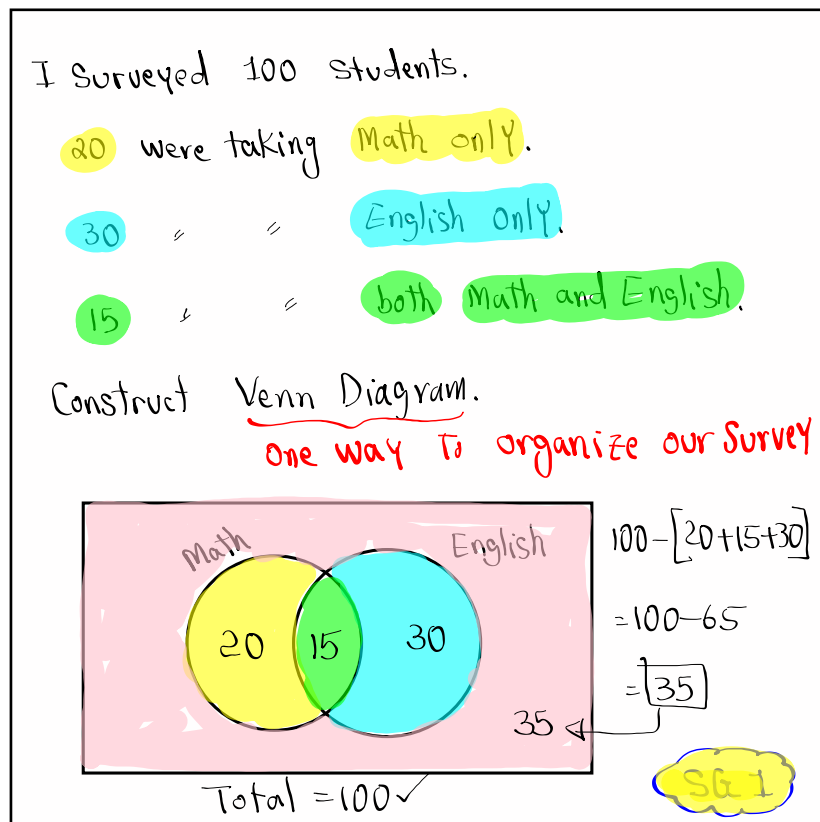 I Surveyed 100 Students.
20 were taking Math only.
30 〃 〃 English only.
15 〃 〃 both Math and English.
Construct Venn Diagram.
one way To organize our Survey
Math English
20 15 30
35
100-[20+15+30]
=100-65
=35
Total =100✓
SG 1